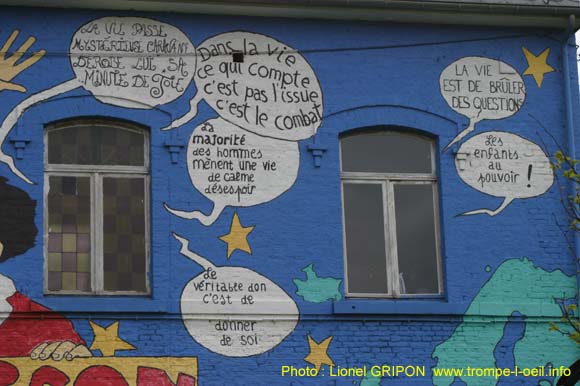 LA VIE PASSE
MYSTÉRIEUSE CARAVANE
DÉROBE LUI SA
MINUTE DE JOIE
Dans la vie
ce qui compte
c'est pas l'issue
c'est le combat
LA VIE
EST DE BRÛLER
DES QUESTIONS
La
majorité
des hommes
mènent une vie
de calme
désespoir
Les
enfants au
pouvoir !
Le
véritable don
c'est de
donner
de soi
SON
Photo : Lionel GRIPON www.trompe-l-oeil.info